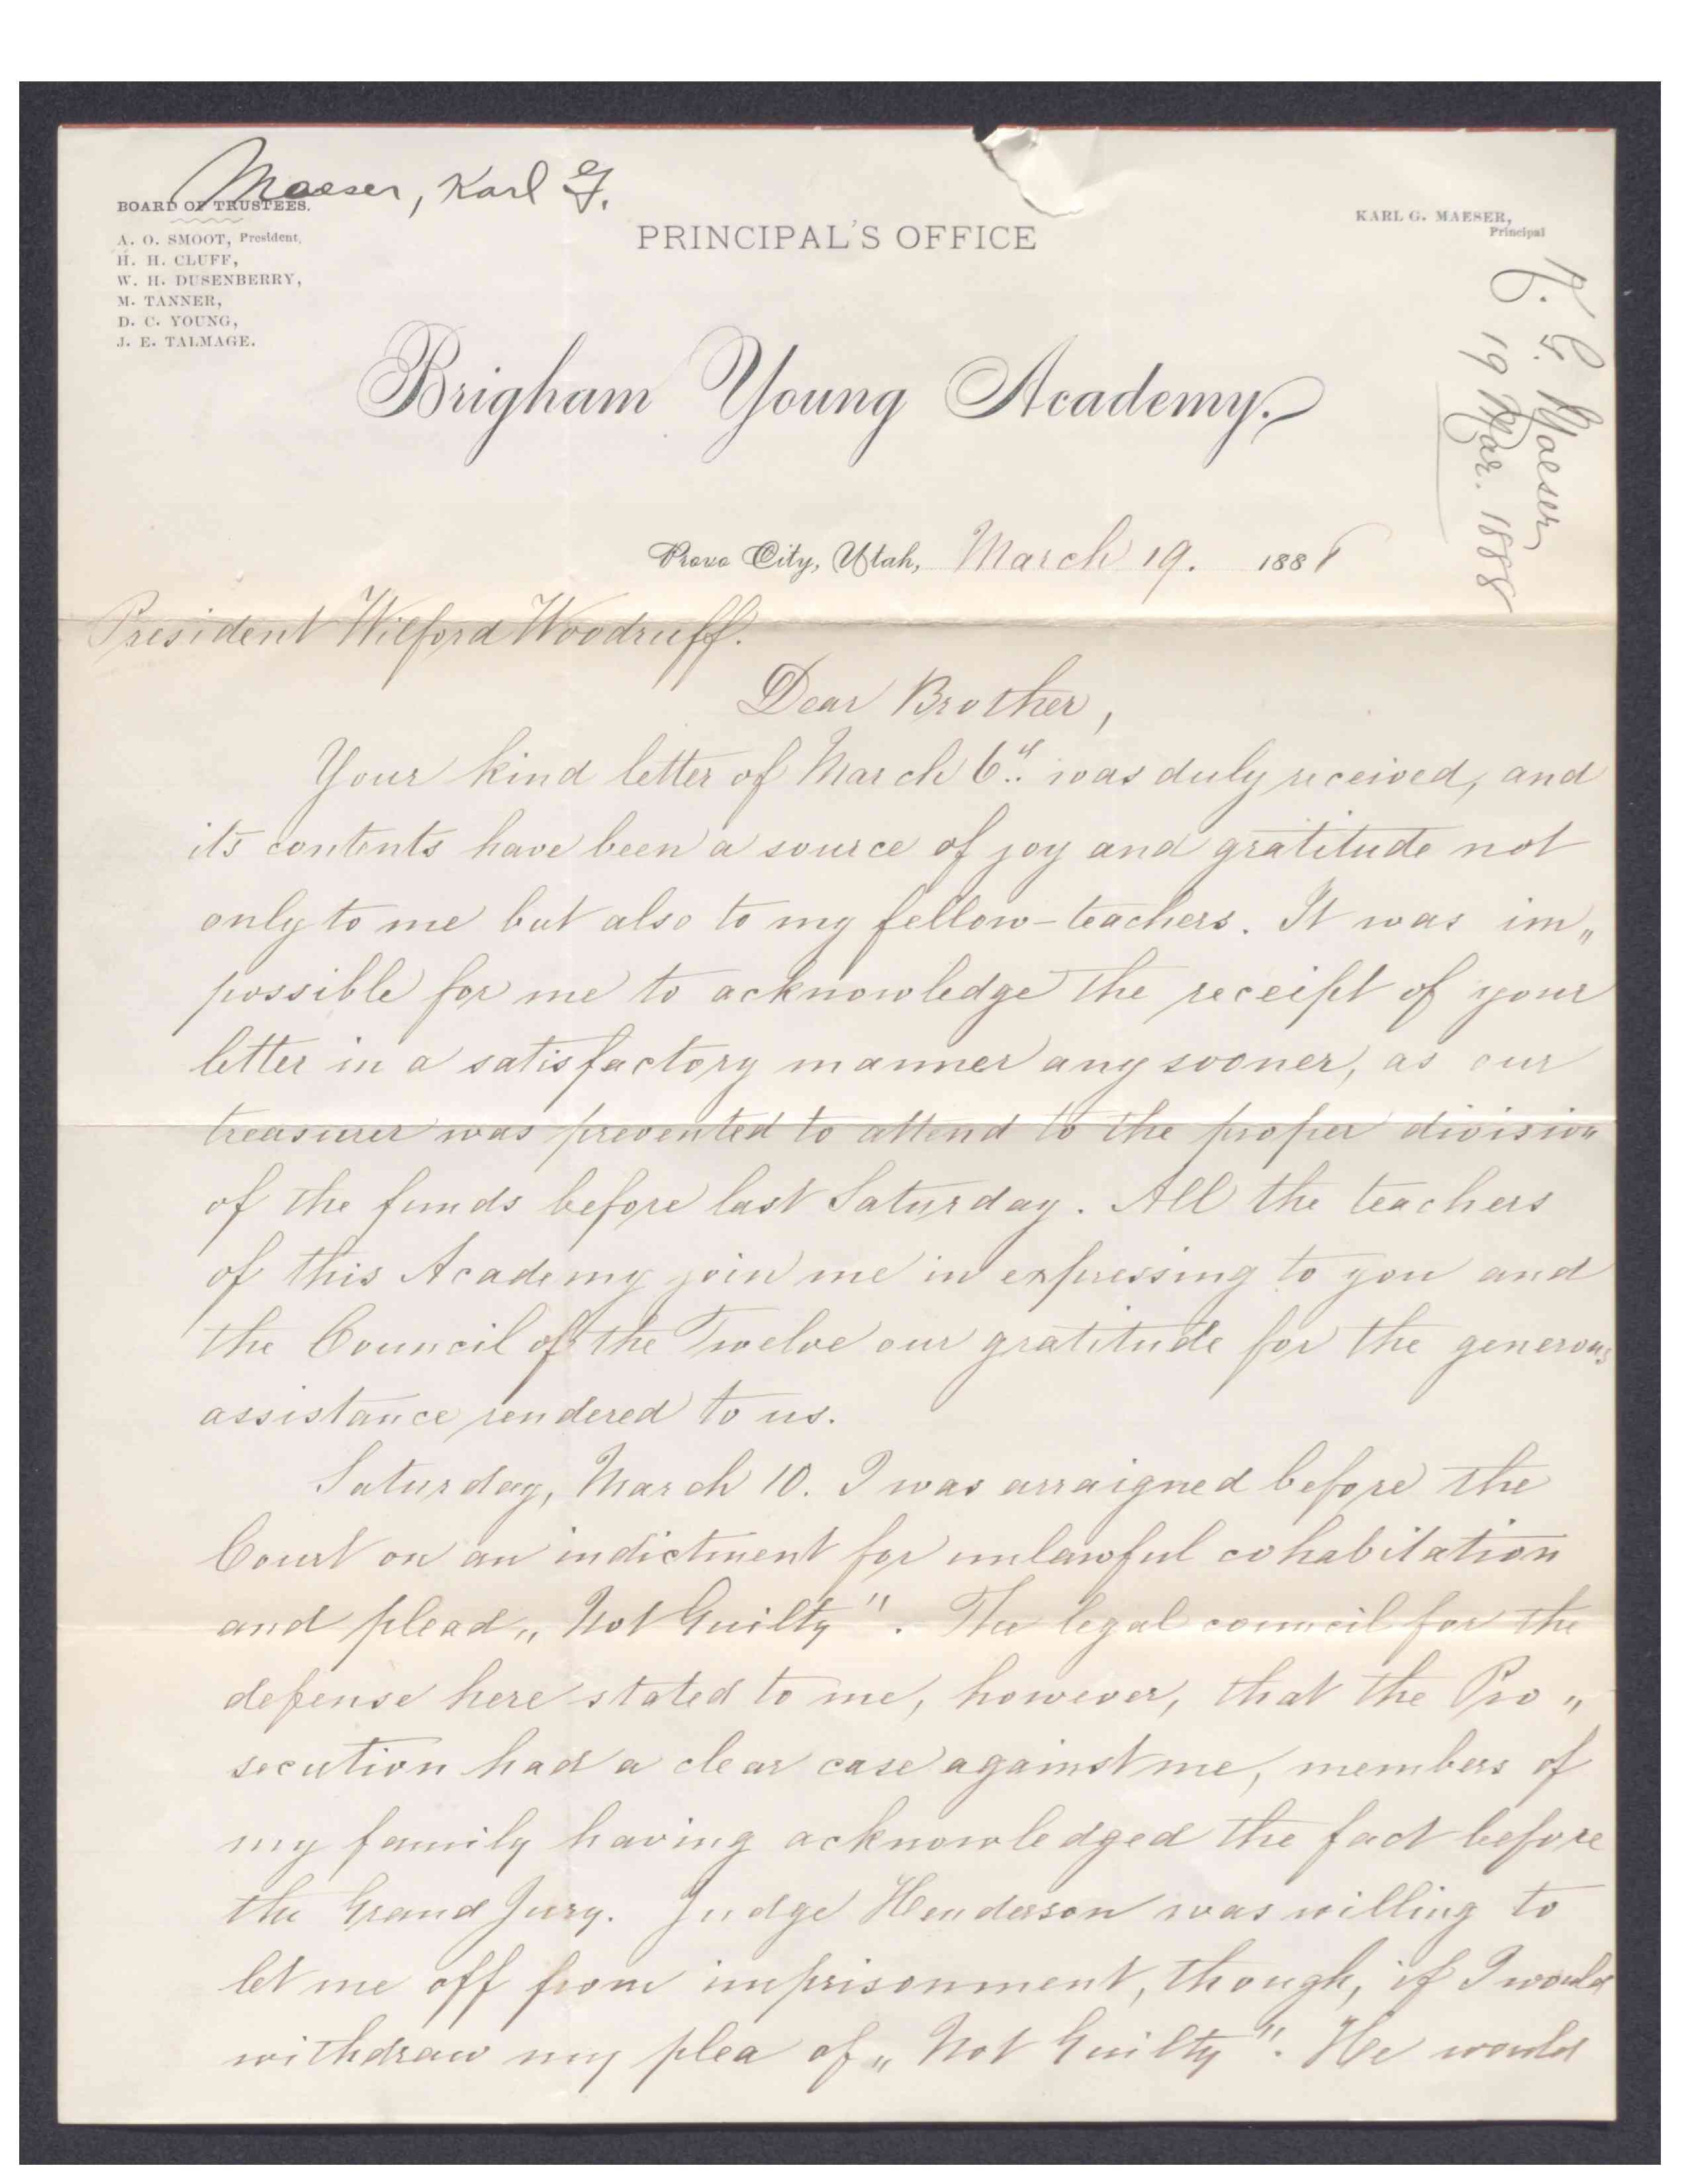 Maeser, Karl G.
BOARD OF TRUSTEES.
A. O. SMOOT, President,
H. H. CLUFF,
W. H. DUSENBERRY,
M. TANNER,
D. C. YOUNG,
J. E. TALMAGE.
PRINCIPAL'S OFFICE
KARL G. MAESER,
Principal
K. G. Maeser
19 Mar. 1888
Brigham Young Academy.
Provo City, Utah, March 19. 1888
President Wilford Woodruff.
Dear Brother,
Your kind letter of March 6th was duly received, and
its contents have been a source of joy and gratitude not
only to me but also to my fellow-teachers. It was im„
possible for me to acknowledge the receipt of your
letter in a satisfactory manner any sooner, as our
treasurer was prevented to attend to the proper division
of the funds before last Saturday. All the teachers
of this Academy join me in expressing to you and
the Council of the Twelve our gratitude for the generous
assistance rendered to us.
Saturday, March 10. I was arraigned before the
Court on an indictment for unlawful cohabitation
and plead „Not Guilty". The legal council for the
defense here stated to me, however, that the Pro„
secution had a clear case against me, members of
my family having acknowledged the fact before
the Grand Jury. Judge Henderson was willing to
let me off from imprisonment, though, if I would
withdraw my plea of „Not Guilty". He would